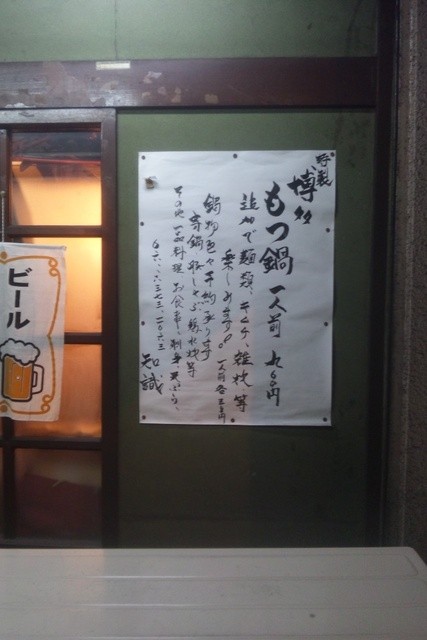 特製
博多
もつ鍋 一人前 九八〇円
追加で麺類、キムチ、雑炊、等
楽しめます。
鍋物色々予約承ります
一人前各三千円
寄鍋
等
その他 一品料理 お食事、刺身、天ぷら、
知誠
ビール